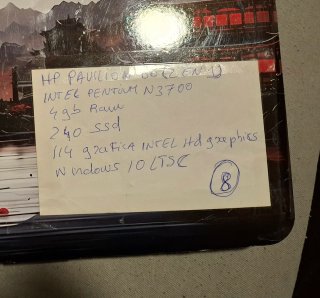 HP PAVILION
INTEL PENTIUM N3700
4gb Ram
240 ssd
114 grafica INTEL Hd graphics
Windows 10 LTSC
8